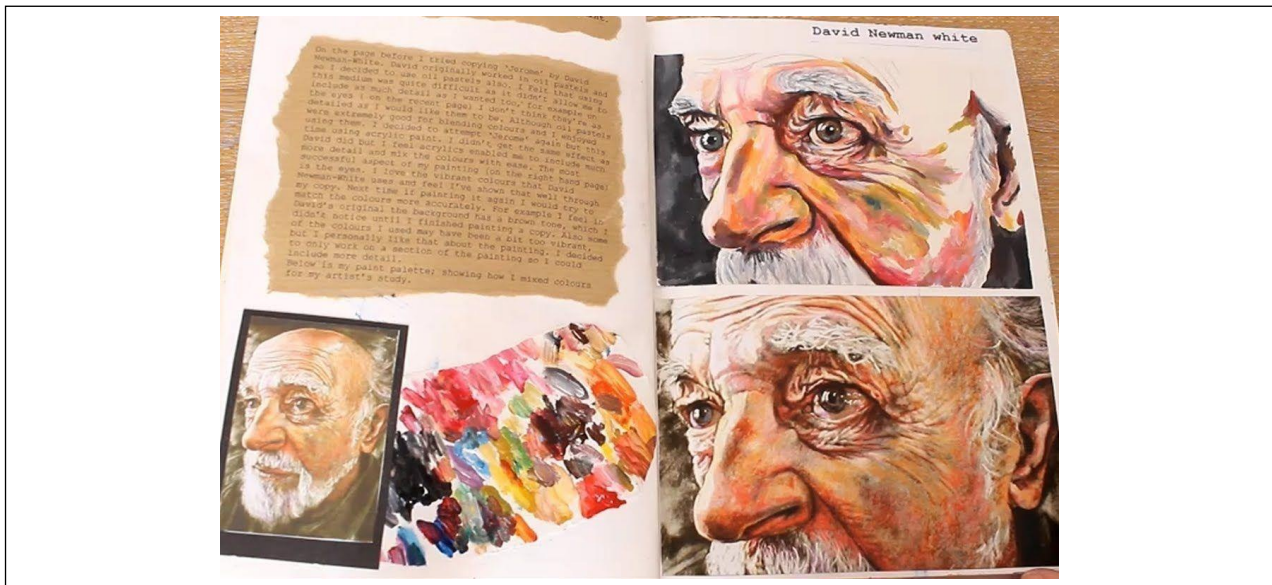 On the page before I tried copying 'Jerome' by David
Newman-White. David originally worked in oil pastels and
so I decided to use oil pastels also. I felt that using
this medium was quite difficult as it didn't allow me to
include as much detail as I wanted too, for example on
the eyes (on the recent page) I don't think they're as
detailed as I would like them to be. Although oil pastels
were extremely good for blending colours and I enjoyed
using them. I decided to attempt 'Jerome' again but this
time using acrylic paint. I didn't get the same effect as
David did but I feel acrylics enabled me to include much
more detail and mix the colours with ease. The most
successful aspect of my painting (on the right hand page)
is the eyes. I love the vibrant colours that David
Newman-White uses and feel I've shown that well through
my copy. Next time if painting it again I would try to
match the colours more accurately. For example I feel in
David's original the background has a brown tone, which I
didn't notice until I finished painting a copy. Also some
of the colours I used may have been a bit too vibrant,
but I personally like that about the painting. I decided
to only work on a section of the painting so I could
include more detail.
Below is my paint palette; showing how I mixed colours
for my artist's study.
David Newman white